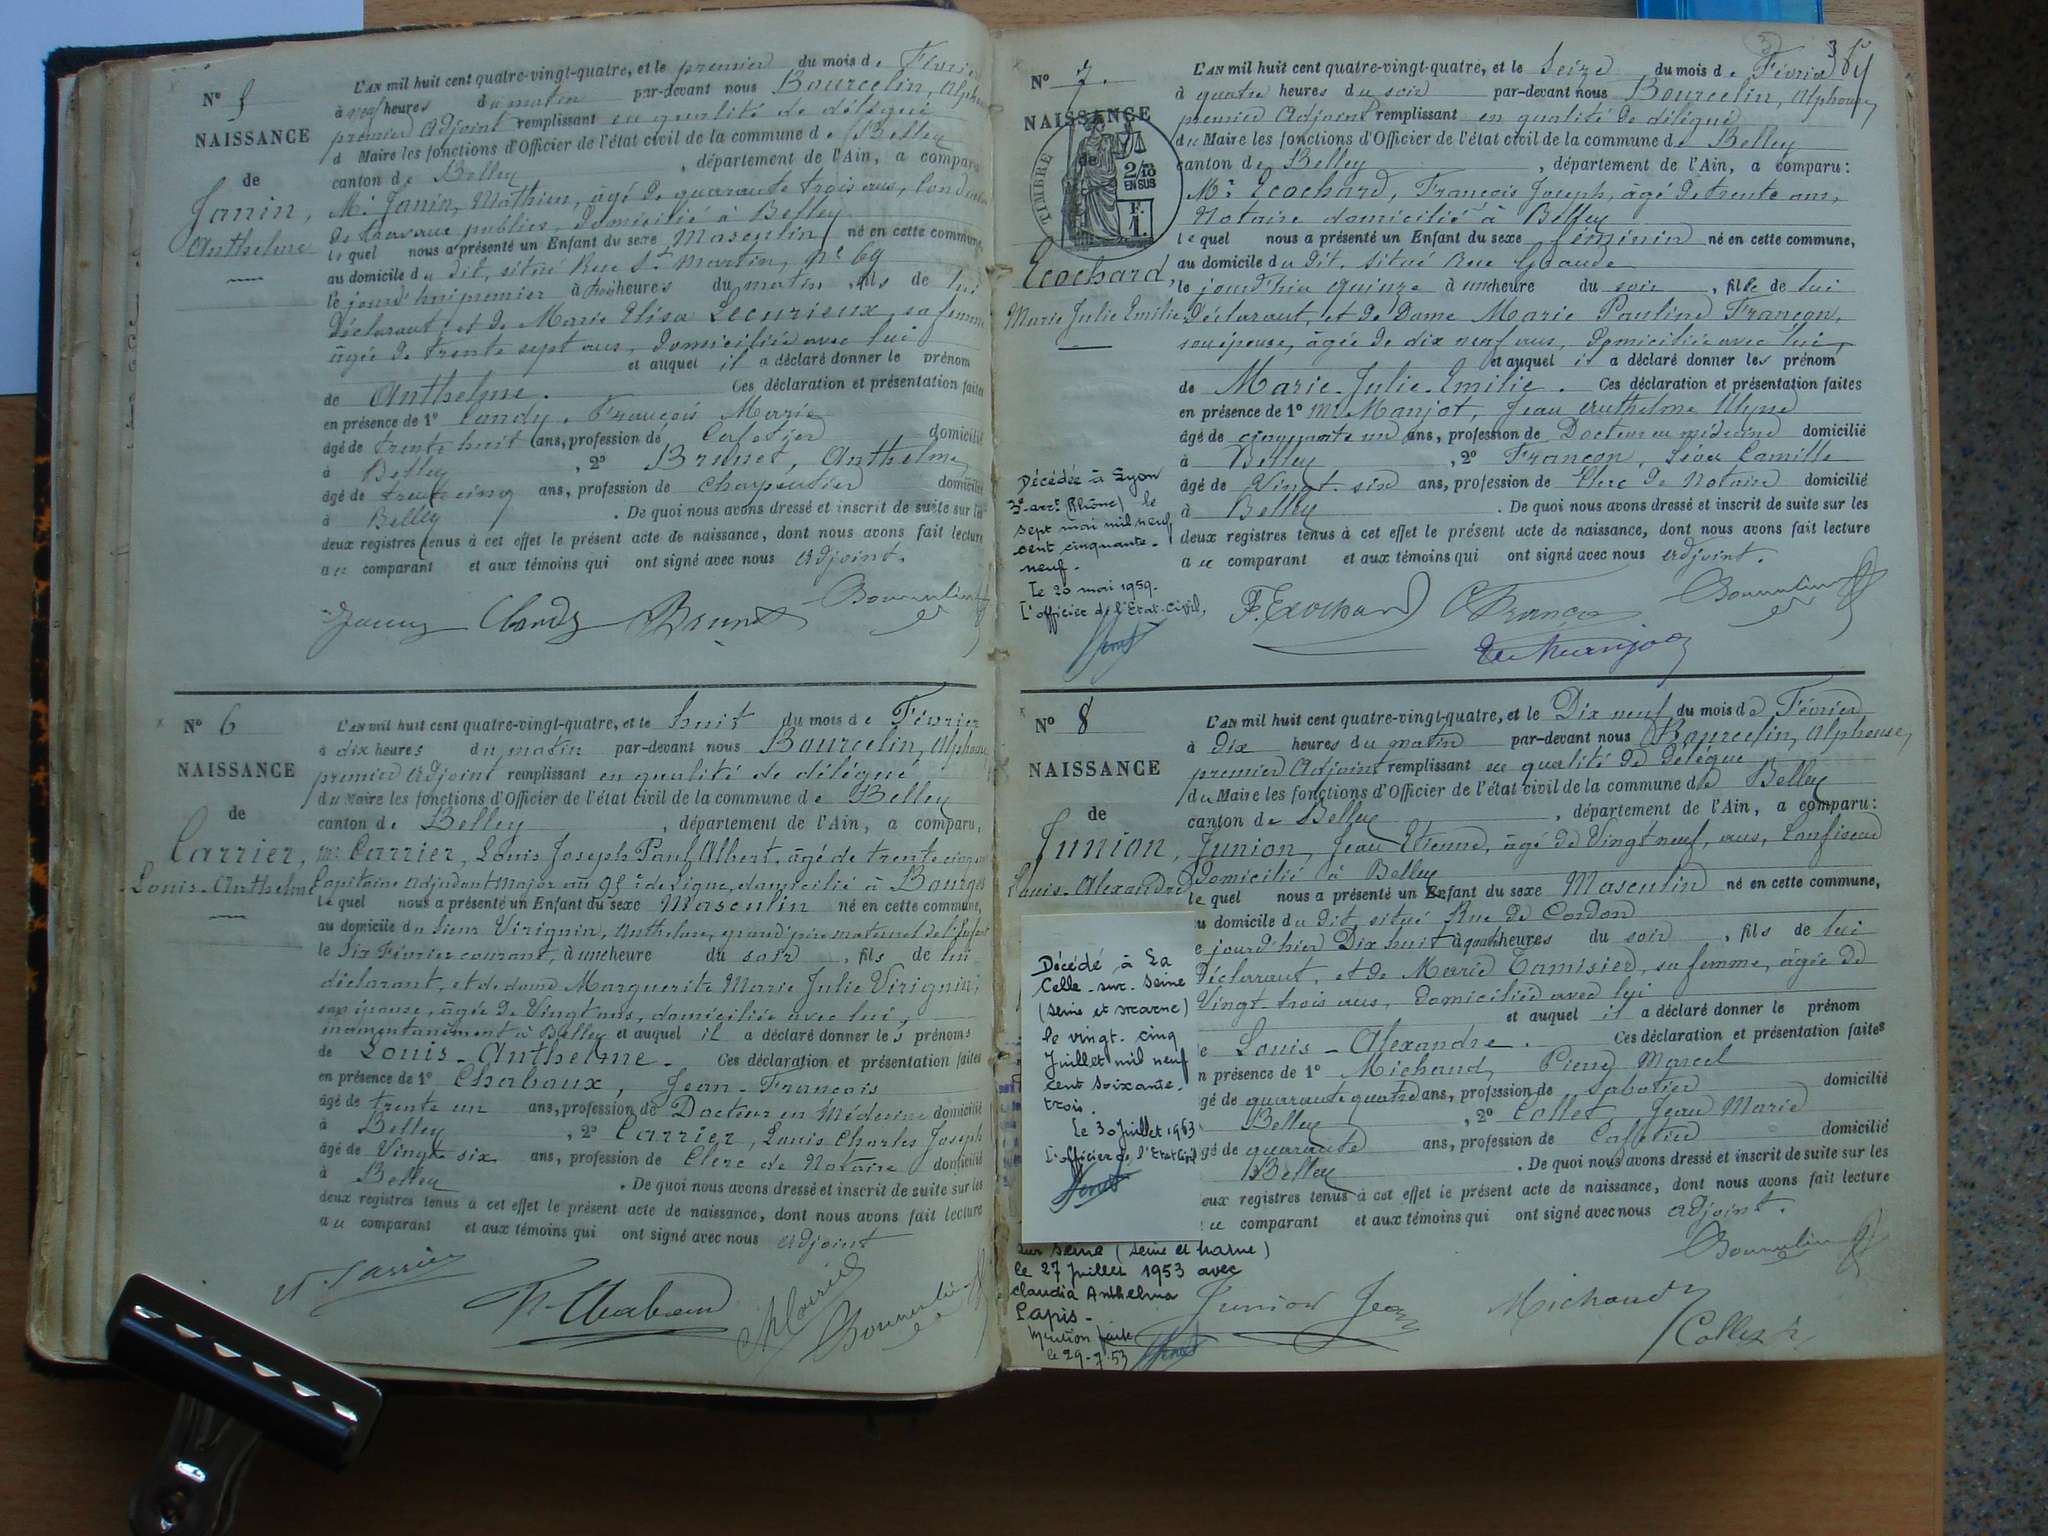 N° 5
NAISSANCE
de
Janin,
Anthelme
L'AN mil huit cent quatre-vingt-quatre, et le premier du mois de Février
à heures du matin par-devant nous Bourcelin, Alphonse
premier Adjoint remplissant en qualité de délégué
d Maire les fonctions d'Officier de l'état civil de la commune de Belley
canton de Belley, département de l'Ain, a comparu
Mr Janin, Mathieu, âgé de quarante trois ans, Conducteur
des travaux publics, domicilié à Belley
lequel nous a présenté un Enfant du sexe Masculin né en cette commune,
au domicile du dit, situé Rue St Martin, N° 69
le jourd'hui premier à trois heures du matin, fils de lui
Déclarant, et de Marie Elisa Lecurieux, sa femme
âgée de trente sept ans, domiciliée avec lui
et auquel il a déclaré donner le prénom
de Anthelme. Ces déclaration et présentation faites
en présence de 1° Candy, François Marie
âgé de trente huit ans, profession de Cafetier domicilié
à Belley, 2° Brunet, Anthelme,
âgé de trente cinq ans, profession de Charpentier domicilié
à Belley. De quoi nous avons dressé et inscrit de suite sur les
deux registres tenus à cet effet le présent acte de naissance, dont nous avons fait lecture
au comparant et aux témoins qui ont signé avec nous adjoint.
Candy Brunet Bourcelin
N° 6
NAISSANCE
de
Carrier,
Louis-Anthelme
L'AN mil huit cent quatre-vingt-quatre, et le huit du mois de Février
à dix heures du matin par-devant nous Bourcelin, Alphonse
premier adjoint remplissant en qualité de délégué
du Maire les fonctions d'Officier de l'état civil de la commune de Belley
canton de Belley, département de l'Ain, a comparu,
Mr Carrier, Louis Joseph Paul Albert, âgé de trente cinq ans
Capitaine Adjudant Major au 95e de Ligne, domicilié à Bourges
lequel nous a présenté un Enfant du sexe Masculin né en cette commune,
au domicile du sieur Virignin, Anthelme, grand père maternel de l'enfant
le Six Février courant, à une heure du soir, fils de lui
déclarant, et de dame Marguerite Marie Julie Virignin,
son épouse, âgée de Vingt ans, domiciliée avec lui,
momentanément à Belley et auquel il a déclaré donner les prénoms
de Louis-Anthelme. Ces déclaration et présentation faites
en présence de 1° Chabaux, Jean-François
âgé de trente un ans, profession de Docteur en Médecine domicilié
à Belley, 2° Carrier, Louis Charles Joseph
âgé de Vingt six ans, profession de Clerc de Notaire domicilié
à Belley. De quoi nous avons dressé et inscrit de suite sur les
deux registres tenus à cet effet le présent acte de naissance, dont nous avons fait lecture
au comparant et aux témoins qui ont signé avec nous adjoint
Carrier Bourcelin
N° 7.
NAISSANCE
de
TIMBRE
2/10
EN SUS
F.
1.
Ecochard,
Marie Julie Emilie
L'AN mil huit cent quatre-vingt-quatre, et le Seize du mois de Février
à quatre heures du soir par-devant nous Bourcelin, Alphonse,
premier Adjoint remplissant en qualité de délégué
du Maire les fonctions d'Officier de l'état civil de la commune de Belley
canton de Belley, département de l'Ain, a comparu:
Mr Ecochard, François Joseph, âgé de trente ans,
Notaire domicilié à Belley
lequel nous a présenté un Enfant du sexe féminin né en cette commune,
au domicile du dit, situé Rue Grande
le jourd'hier quinze à une heure du soir, fille de lui
Déclarant, et de Dame Marie Pauline Francon,
son épouse, âgée de dix neuf ans, domiciliée avec lui,
et auquel il a déclaré donner les prénom
de Marie-Julie-Emilie. Ces déclaration et présentation faites
en présence de 1° Mr Manjot, Jean Anthelme Ulysse
âgé de cinquante un ans, profession de Docteur en médecine domicilié
à Belley, 2° Francon, Camille
âgé de Vingt-six ans, profession de Clerc de Notaire domicilié
à Belley. De quoi nous avons dressé et inscrit de suite sur les
deux registres tenus à cet effet le présent acte de naissance, dont nous avons fait lecture
au comparant et aux témoins qui ont signé avec nous adjoint.
Décédée à Lyon
3e arrt (Rhône) le
sept mai mil neuf
cent cinquante-
neuf.
Le 20 mai 1959.
L'officier de l'Etat-Civil,
F. Ecochard C. Francon Bourcelin
N° 8
NAISSANCE
de
Junion,
Louis-Alexandre
L'AN mil huit cent quatre-vingt-quatre, et le Dix neuf du mois de Février
à Dix heures du matin par-devant nous Bourcelin, Alphonse,
premier Adjoint remplissant en qualité de délégué
du Maire les fonctions d'Officier de l'état civil de la commune de Belley
canton de Belley, département de l'Ain, a comparu:
Junion, Jean Etienne, âgé de Vingt neuf ans, Confiseur
domicilié à Belley
lequel nous a présenté un Enfant du sexe Masculin né en cette commune,
au domicile du dit, situé Rue de Cordon
le jourd'hier Dix huit à quatre heures du soir, fils de lui
Déclarant, et de Marie Tamisier, sa femme, âgée de
Vingt trois ans, domiciliée avec lui
et auquel il a déclaré donner le prénom
de Louis-Alexandre. Ces déclaration et présentation faites
en présence de 1° Michaud, Pierre Marcel
âgé de quarante quatre ans, profession de Sabotier domicilié
Belley, 2° Collet, Jean Marie
âgé de quarante ans, profession de Cafetier domicilié
Belley. De quoi nous avons dressé et inscrit de suite sur les
deux registres tenus à cet effet le présent acte de naissance, dont nous avons fait lecture
au comparant et aux témoins qui ont signé avec nous adjoint.
Décédé à La
Celle-sur-Seine
(Seine et Marne)
le vingt-cinq
Juillet mil neuf
cent soixante-
trois.
Le 30 Juillet 1963
L'officier de l'Etat Civil
sur Seine (Seine et Marne)
le 27 Juillet 1953 avec
Claudia Anthelma
Papis-
Mention faite
le 29-7-53
Junion Jean Michaud Collet Bourcelin